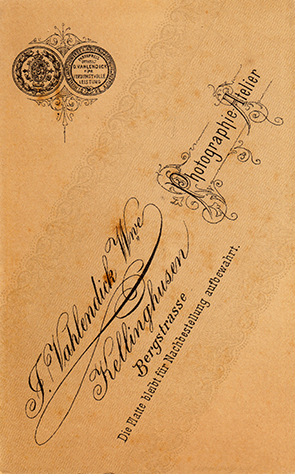 D. VAHLENDICK
FÜR
VERDIENSTVOLLE
LEISTUNG
Photographie Atelier
J. Vahlendick Wwe
Kellinghusen
Bergstrasse
Die Platte bleibt für Nachbestellung aufbewahrt.